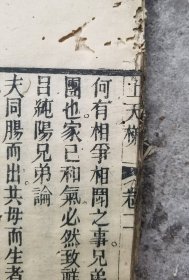 上天梯 卷二
何有相爭相鬭之事兄弟
團也家已和氣必然致祥
呂純陽兄弟論
夫同腸而出共母而生者